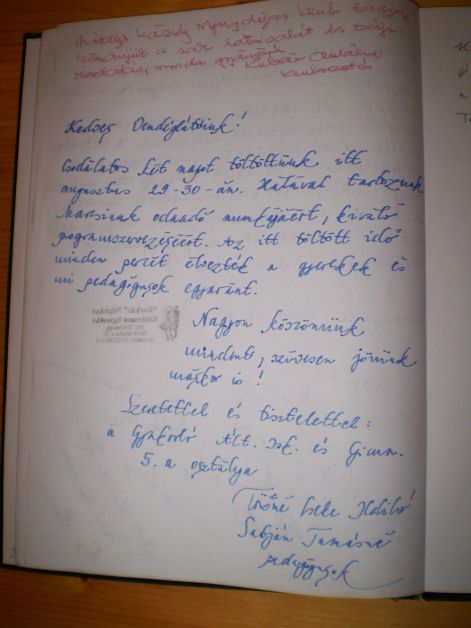 község Nyugdíjas klub tagjai
köszönjük a sok látnivalót és tájé-
koztatást, mind gyönyörű
Kedves Vendéglátóink!
Csodálatos két napot töltöttünk itt
augusztus 29-30-án. Hálával tartozunk
Marsinak odaadó munkájáért, kiváló
programszervezéséért. Az itt töltött idő
minden percét élvezték a gyerekek és
mi pedagógusok egyaránt.
Nagyon köszönünk
mindent, szívesen jövünk
máskor is!
Szeretettel és tisztelettel:
a Gyakorló Ált. Isk. és Gimn.
5. a osztálya
Ildikó
Sabján Tamásné
pedagógusok